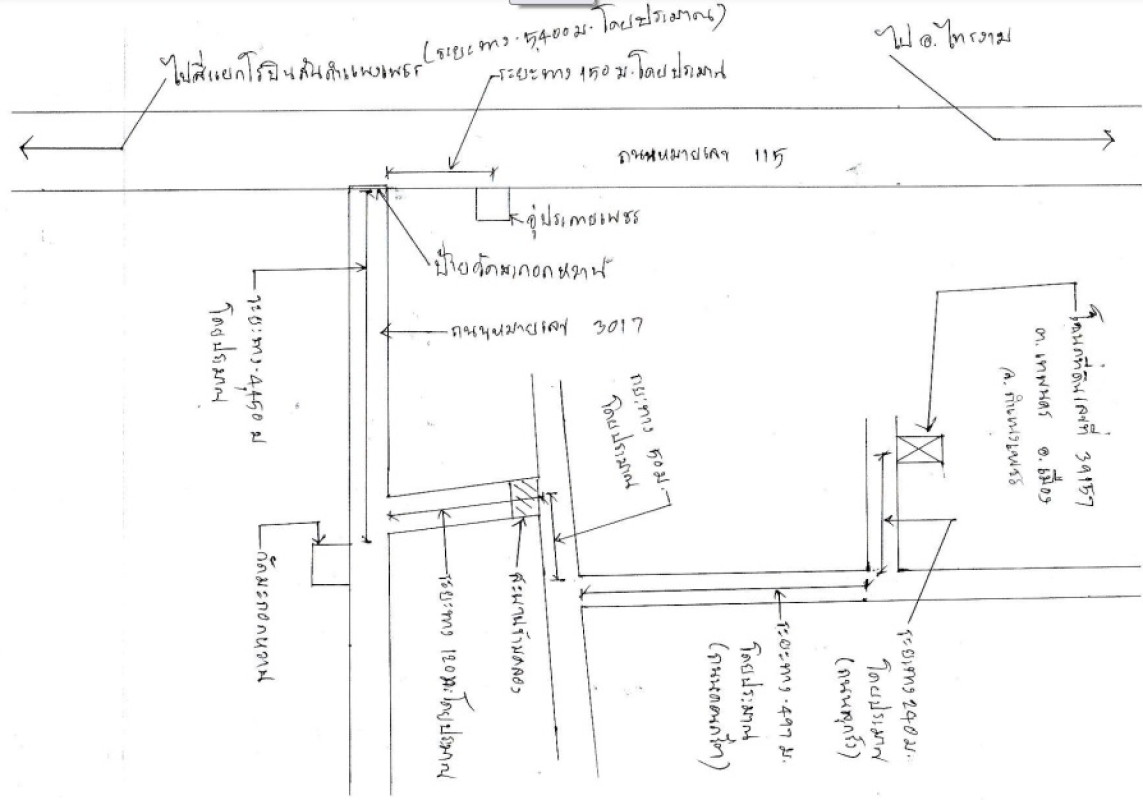 (ระยะทาง 5,400 ม. โดยประมาณ)
ไปสี่แยกโรบินสันกำแพงเพชร
ระยะทาง 150 ม. โดยประมาณ
ไป อ. ไทรงาม
ถนนหมายเลข 115
อู่ประกายเพชร
ป้ายวัดมะกอกหวาน
ถนนหมายเลข 3017
ระยะทาง 4,450 ม
โดยประมาณ
ระยะทาง 50 ม.
โดยประมาณ
โฉนดที่ดินเลขที่ 39157
ต. เทพนคร อ. เมือง
จ. กำแพงเพชร
วัดมะกอกหวาน
ระยะทาง 120 ม. โดยประมาณ
สะพานข้ามคลอง
ระยะทาง 497 ม.
โดยประมาณ
(ถนนคอนกรีต)
ระยะทาง 240 ม.
โดยประมาณ
(ถนนลูกรัง)